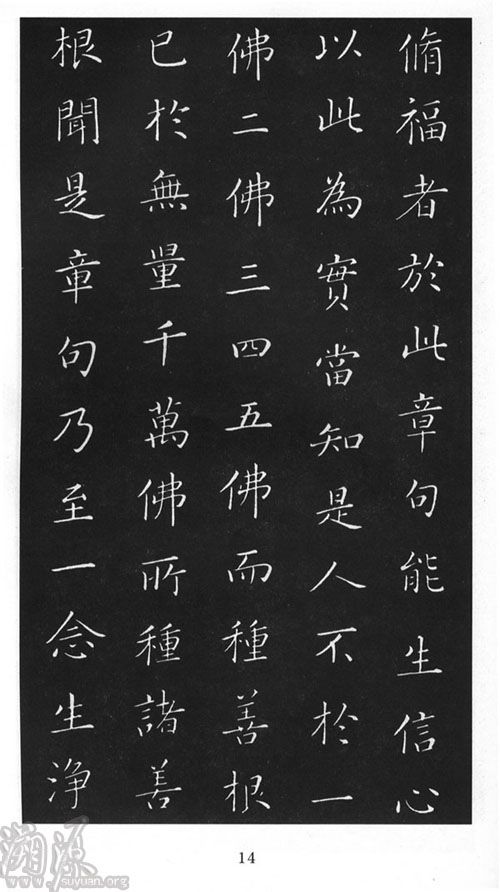 脩福者於此章句能生信心
以此為實當知是人不於一
佛二佛三四五佛而種善根
已於無量千萬佛所種諸善
根聞是章句乃至一念生淨
14
溯源
www.suyuan.org